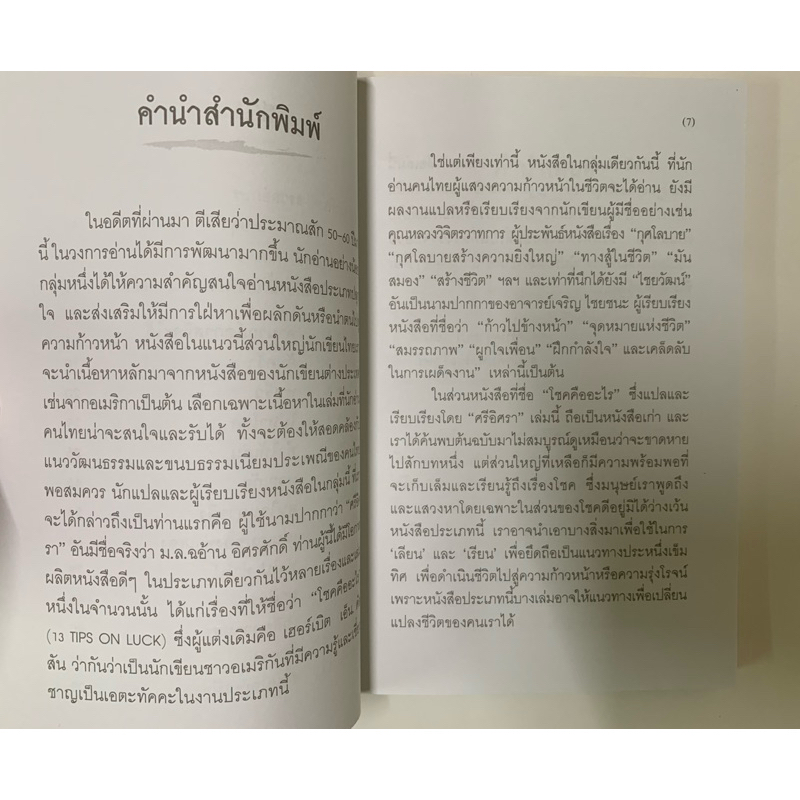 คำนำสำนักพิมพ์
ในอดีตที่ผ่านมา ตีเสียว่าประมาณสัก 50-60 ปี
นี้ ในวงการอ่านได้มีการพัฒนามากขึ้น นักอ่านอย่าง
กลุ่มหนึ่งได้ให้ความสำคัญสนใจอ่านหนังสือประเภท
ใจ และส่งเสริมให้มีการใฝ่หาเพื่อผลักดันหรือนำ
ความก้าวหน้า หนังสือในแนวนี้ส่วนใหญ่นักเขียนไทย
จะนำเนื้อหาหลักมาจากหนังสือของนักเขียนต่างประเทศ
เช่นจากอเมริกาเป็นต้น เลือกเฉพาะเนื้อหาในเล่มที่นัก
คนไทยน่าจะสนใจและรับได้ ทั้งจะต้องให้สอดคล้อง
แนววัฒนธรรมและขนบธรรมเนียมประเพณีของคน
พอสมควร นักแปลและผู้เรียบเรียงหนังสือในกลุ่มนี้ ที่
จะได้กล่าวถึงเป็นท่านแรกคือ ผู้ใช้นามปากกาว่า “ศรี
รา” อันมีชื่อจริงว่า ม.ล.ฉอ้าน อิศรศักดิ์ ท่านผู้นี้ได้มี
ผลิตหนังสือดีๆ ในประเภทเดียวกันไว้หลายเรื่องและ
หนึ่งในจำนวนนั้น ได้แก่เรื่องที่ให้ชื่อว่า “โชคคืออะไร
(13 TIPS ON LUCK) ซึ่งผู้แต่งเดิมคือ เฮอร์เบิต เอ็น
สัน ว่ากันว่าเป็นนักเขียนชาวอเมริกันที่มีความรู้และ
ชาญเป็นเอตะทัคคะในงานประเภทนี้
(7)
ใช่แต่เพียงเท่านี้ หนังสือในกลุ่มเดียวกันนี้ ที่นัก
อ่านคนไทยผู้แสวงความก้าวหน้าในชีวิตจะได้อ่าน ยังมี
ผลงานแปลหรือเรียบเรียงจากนักเขียนผู้มีชื่ออย่างเช่น
คุณหลวงวิจิตรวาทการ ผู้ประพันธ์หนังสือเรื่อง “กุศโลบาย”
“กุศโลบายสร้างความยิ่งใหญ่” “ทางสู้ในชีวิต” “มัน
สมอง” “สร้างชีวิต” ฯลฯ และเท่าที่นึกได้ยังมี “ไชยวัฒน์”
อันเป็นนามปากกาของอาจารย์เจริญ ไชยชนะ ผู้เรียบเรียง
หนังสือที่ชื่อว่า “ก้าวไปข้างหน้า” “จุดหมายแห่งชีวิต”
“สมรรถภาพ” “ผูกใจเพื่อน” “ฝึกกำลังใจ” และเคล็ดลับ
ในการเผด็จงาน” เหล่านี้เป็นต้น
ในส่วนหนังสือที่ชื่อ “โชคคืออะไร” ซึ่งแปลและ
เรียบเรียงโดย “ศรีอิศรา” เล่มนี้ ถือเป็นหนังสือเก่า และ
เราได้ค้นพบต้นฉบับมาไม่สมบูรณ์ดูเหมือนว่าจะขาดหาย
ไปสักบทหนึ่ง แต่ส่วนใหญ่ที่เหลือก็มีความพร้อมพอที่
จะเก็บเล็มและเรียนรู้ถึงเรื่องโชค ซึ่งมนุษย์เราพูดถึง
และแสวงหาโดยเฉพาะในส่วนของโชคดีอยู่มิได้ว่างเว้น
หนังสือประเภทนี้ เราอาจนำเอาบางสิ่งมาเพื่อใช้ในการ
‘เลียน’ และ ‘เรียน’ เพื่อยึดถือเป็นแนวทางประหนึ่งเข็ม
ทิศ เพื่อดำเนินชีวิตไปสู่ความก้าวหน้าหรือความรุ่งโรจน์
เพราะหนังสือประเภทนี้บางเล่มอาจให้แนวทางเพื่อเปลี่ยน
แปลงชีวิตของคนเราได้